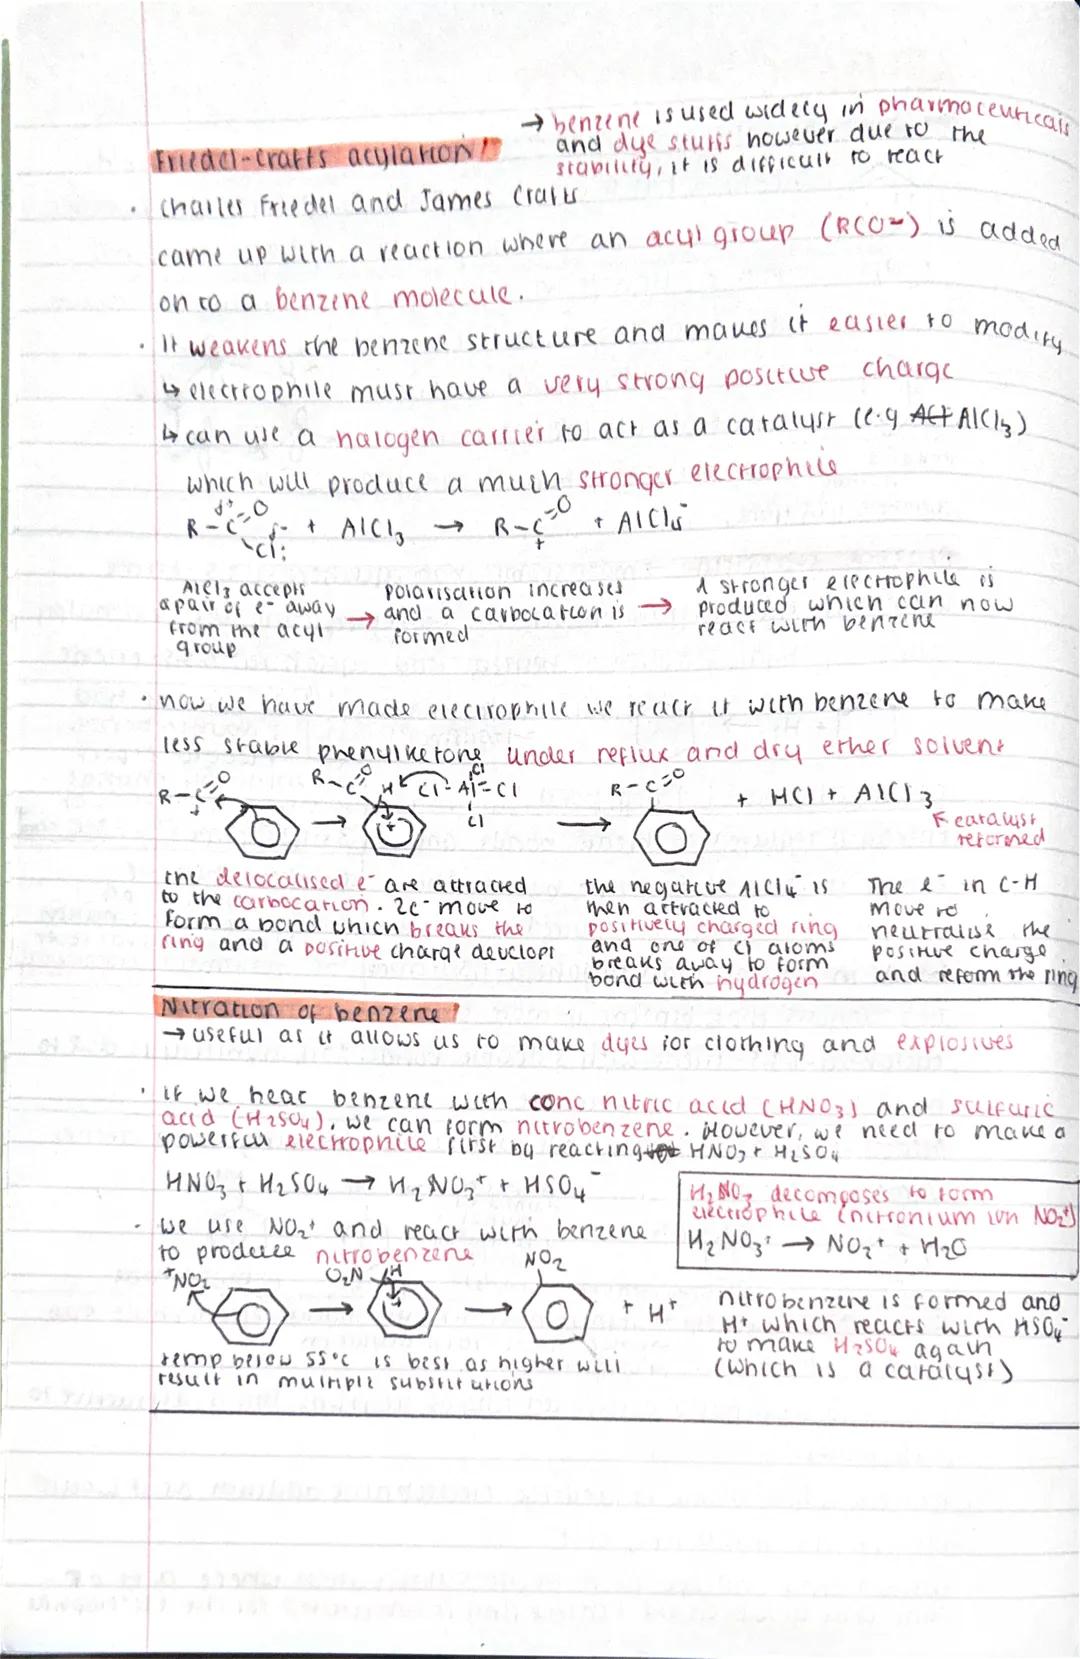 → benzene is used widely in pharmaceuticals
and dye stuffs however due to the
stability, it is difficult to react
Friedel-crafts acylation!
• Charles Friedel and James Crafts
came up with a reaction where an acyl group (RCO-) is added
on to a benzene molecule.
• It weakens the benzene structure and makes it easier to modify
↳ electrophile must have a very strong positive charge
↳ can use a halogen carrier to act as a catalyst (e.g AlCl₃)
which will produce a much stronger electrophile
R-C δ+ =O Cl: δ- + AlCl₃ → R-C+ =O + AlCl₄⁻
AlCl₃ accepts
a pair of e⁻ away
from the acyl
group
→ polarisation increases
and a carbocation is
formed
→ A stronger electrophile is
produced which can now
react with benzene
• now we have made electrophile we react it with benzene to make
less stable phenylketone under reflux and dry ether solvent
R-C+ =O → R-C=O H Cl-Al-Cl Cl Cl → R-C=O + HCl + AlCl₃
catalyst
reformed
the delocalised e⁻ are attracted
to the carbocation. 2e⁻ move to
form a bond which breaks the
ring and a positive charge develops
the negative AlCl₄⁻ is
then attracted to
positively charged ring
and one of Cl atoms
breaks away to form
bond with hydrogen
The e⁻ in C-H
move to
neutralise the
positive charge
and reform the ring
Nitration of benzene!
→ useful as it allows us to make dyes for clothing and explosives
• if we heat benzene with conc nitric acid (HNO₃) and sulfuric
acid (H₂SO₄), we can form nitrobenzene. However, we need to make a
powerful electrophile first by reacting HNO₃ + H₂SO₄
HNO₃ + H₂SO₄ → H₂NO₃⁺ + HSO₄⁻
H₂NO₃ decomposes to form
electrophile (nitronium ion NO₂⁺)
H₂NO₃⁺ → NO₂⁺ + H₂O
• we use NO₂⁺ and react with benzene
to produce nitrobenzene
⁺NO₂ → O₂N H → NO₂ + H⁺
nitrobenzene is formed and
H⁺ which reacts with HSO₄⁻
to make H₂SO₄ again
(which is a catalyst)
temp below 55°c is best as higher will
result in multiple substitutions